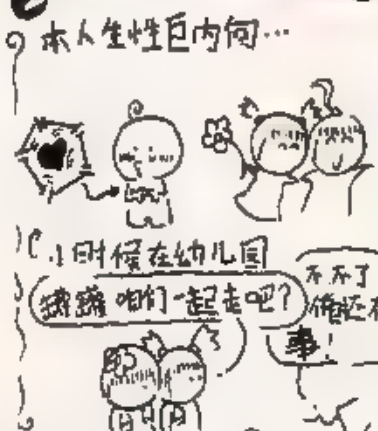 本人生性巨内向…
小时候在幼儿园
咱们一起走吧？
不不了
俺还有
事！